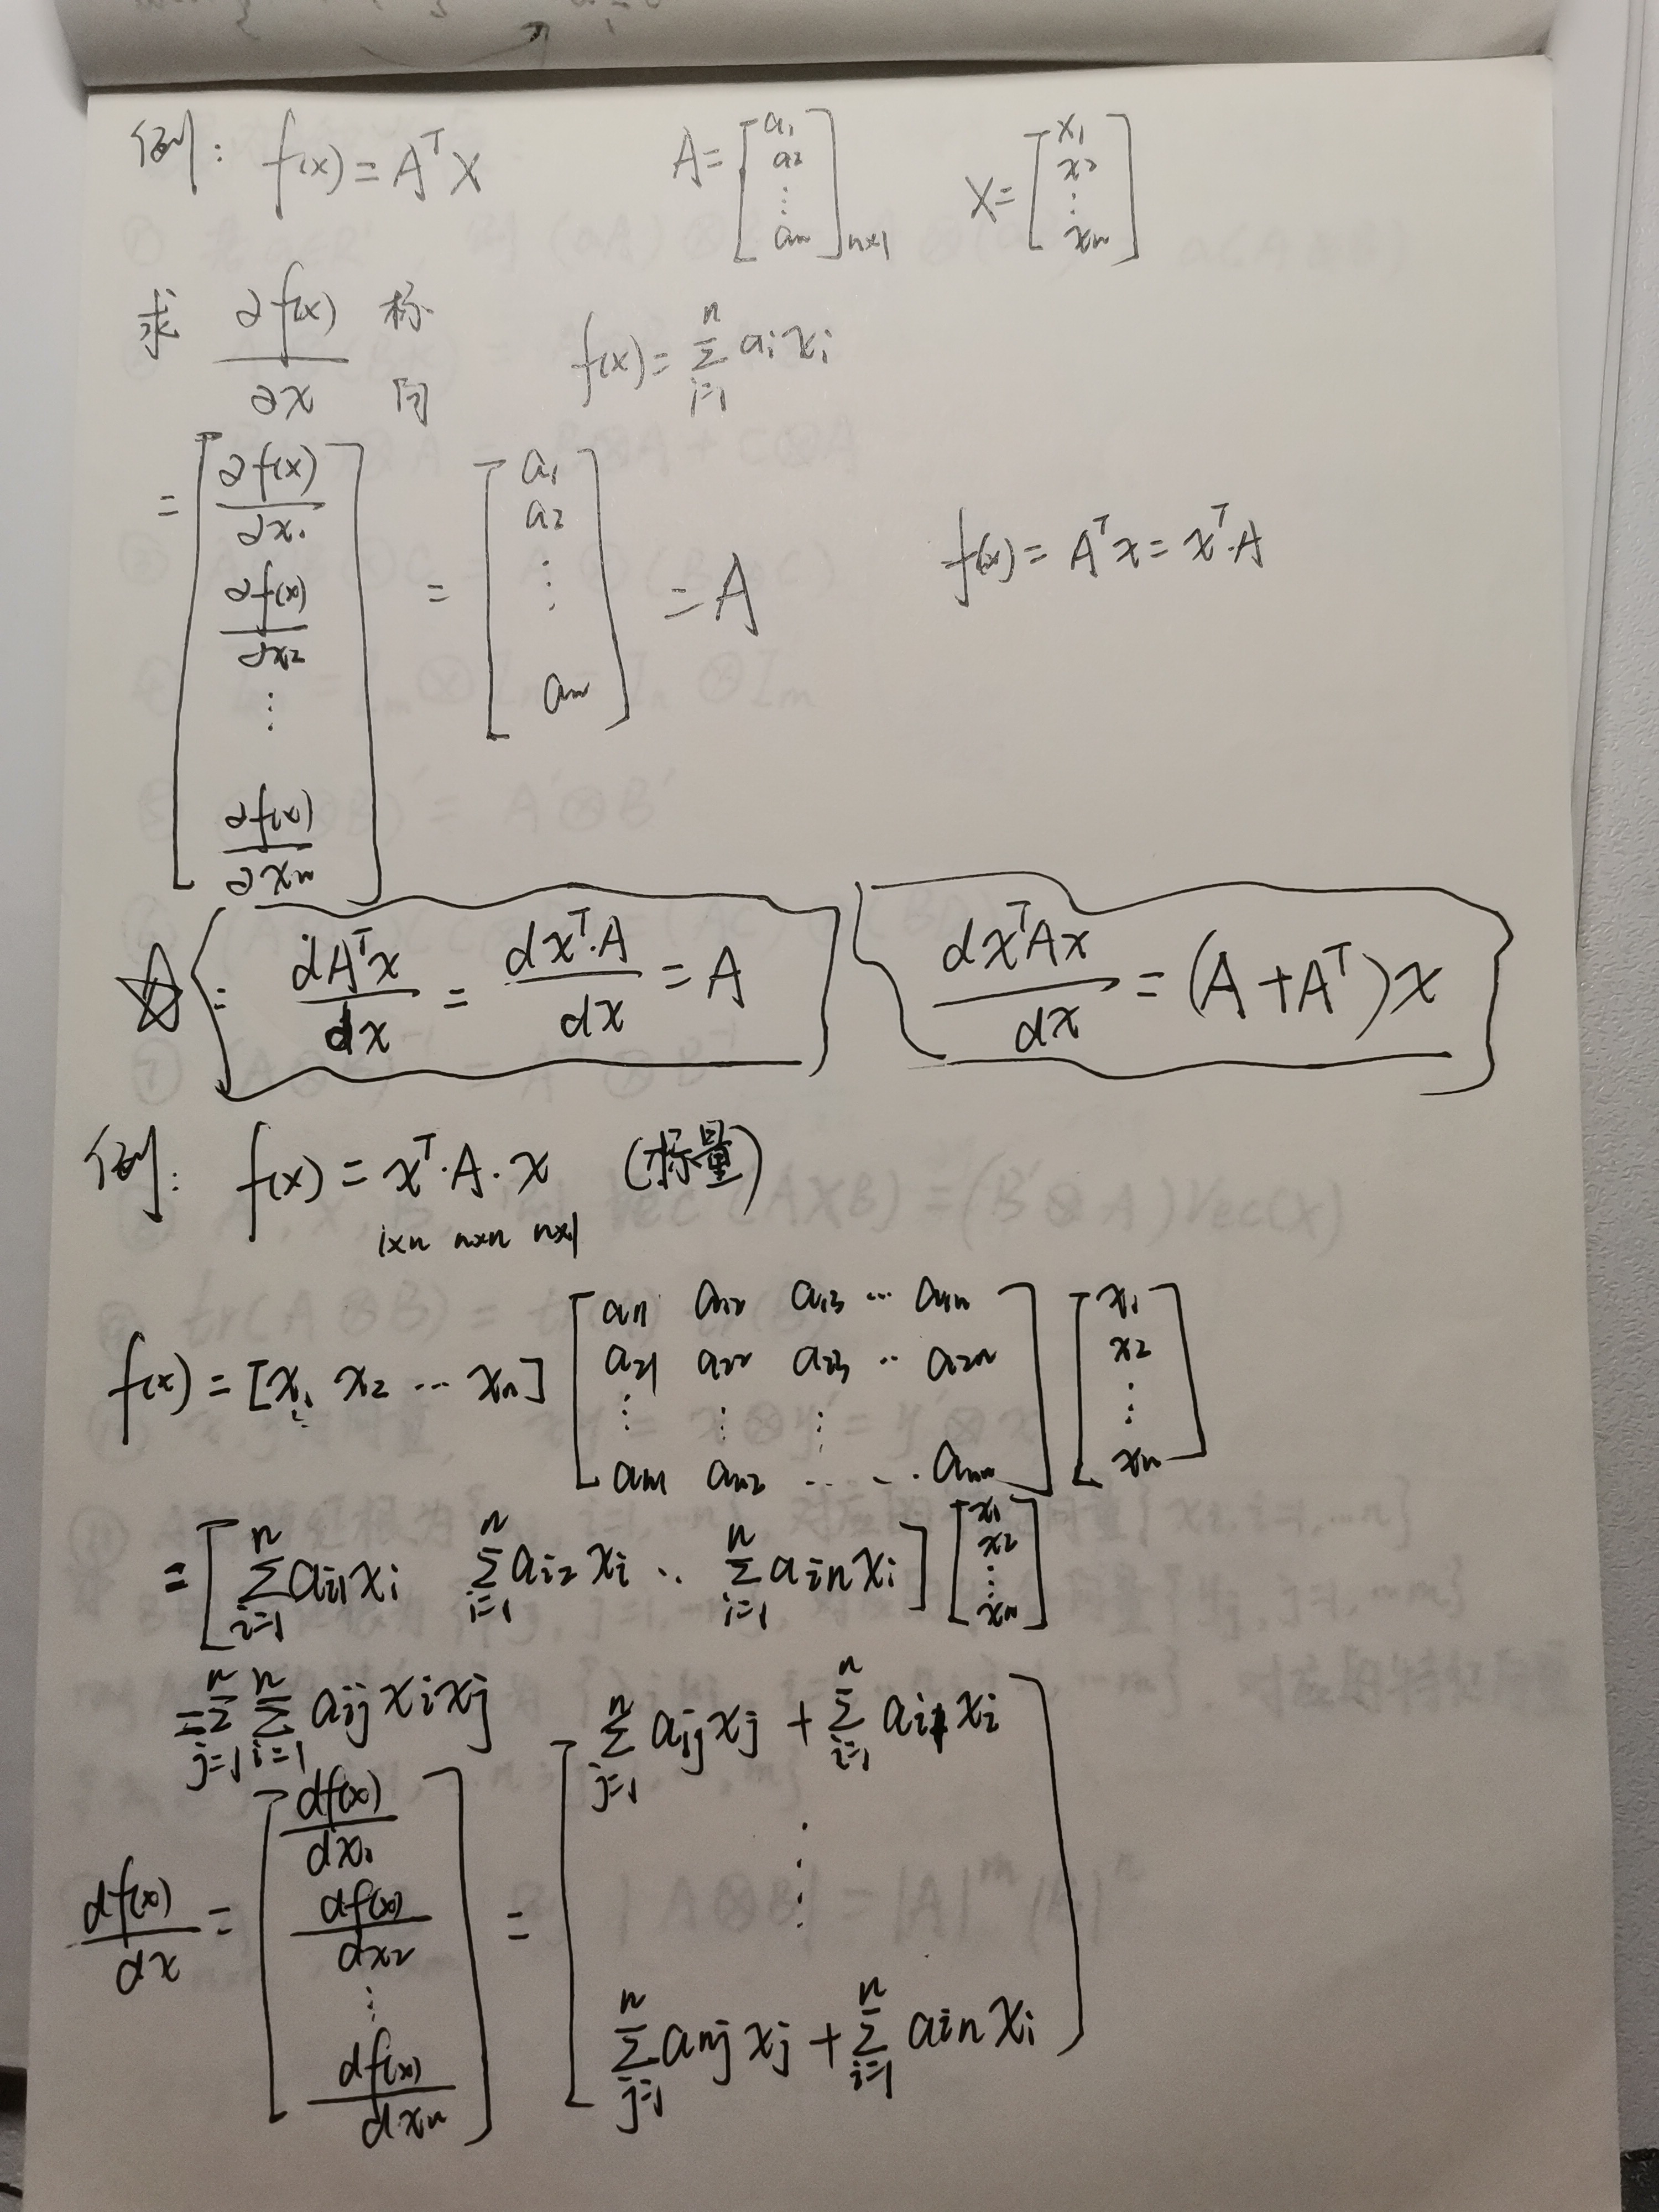 例: f(x) = AᵀX A = [a₁ a₂ ⋮ aₙ]n×1 X = [x₁ x₂ ⋮ xₙ]
求 ∂f(x)/∂x 标 向 f(x) = Σⁿᵢ₌₁ aᵢxᵢ
= [∂f(x)/∂x₁ ∂f(x)/∂x₂ ⋮ ∂f(x)/∂xₙ] = [a₁ a₂ ⋮ aₙ] = A f(x) = Aᵀx = xᵀ·A
☆: dAᵀx/dx = dxᵀ·A/dx = A dxᵀAx/dx = (A + Aᵀ)x
例: f(x) = xᵀ·A·x (标量)
1×n n×n n×1
f(x) = [x₁ x₂ ⋯ xₙ] [a₁₁ a₁₂ a₁₃ ⋯ a₁ₙ; a₂₁ a₂₂ a₂₃ ⋯ a₂ₙ; ⋮ ⋮ ⋮; aₙ₁ aₙ₂ ⋯ ⋯ aₙₙ] [x₁ x₂ ⋮ xₙ]
= [Σⁿᵢ₌₁ aᵢ₁xᵢ Σⁿᵢ₌₁ aᵢ₂xᵢ ⋯ Σⁿᵢ₌₁ aᵢₙxᵢ] [x₁ x₂ ⋮ xₙ]
= Σⁿⱼ₌₁ Σⁿᵢ₌₁ aᵢⱼxᵢxⱼ
df(x)/dx = [df(x)/dx₁ df(x)/dx₂ ⋮ df(x)/dxₙ] = [Σⁿⱼ₌₁ a₁ⱼxⱼ + Σⁿᵢ₌₁ aᵢ₁xᵢ ⋮ Σⁿⱼ₌₁ aₙⱼxⱼ + Σⁿᵢ₌₁ aᵢₙxᵢ]